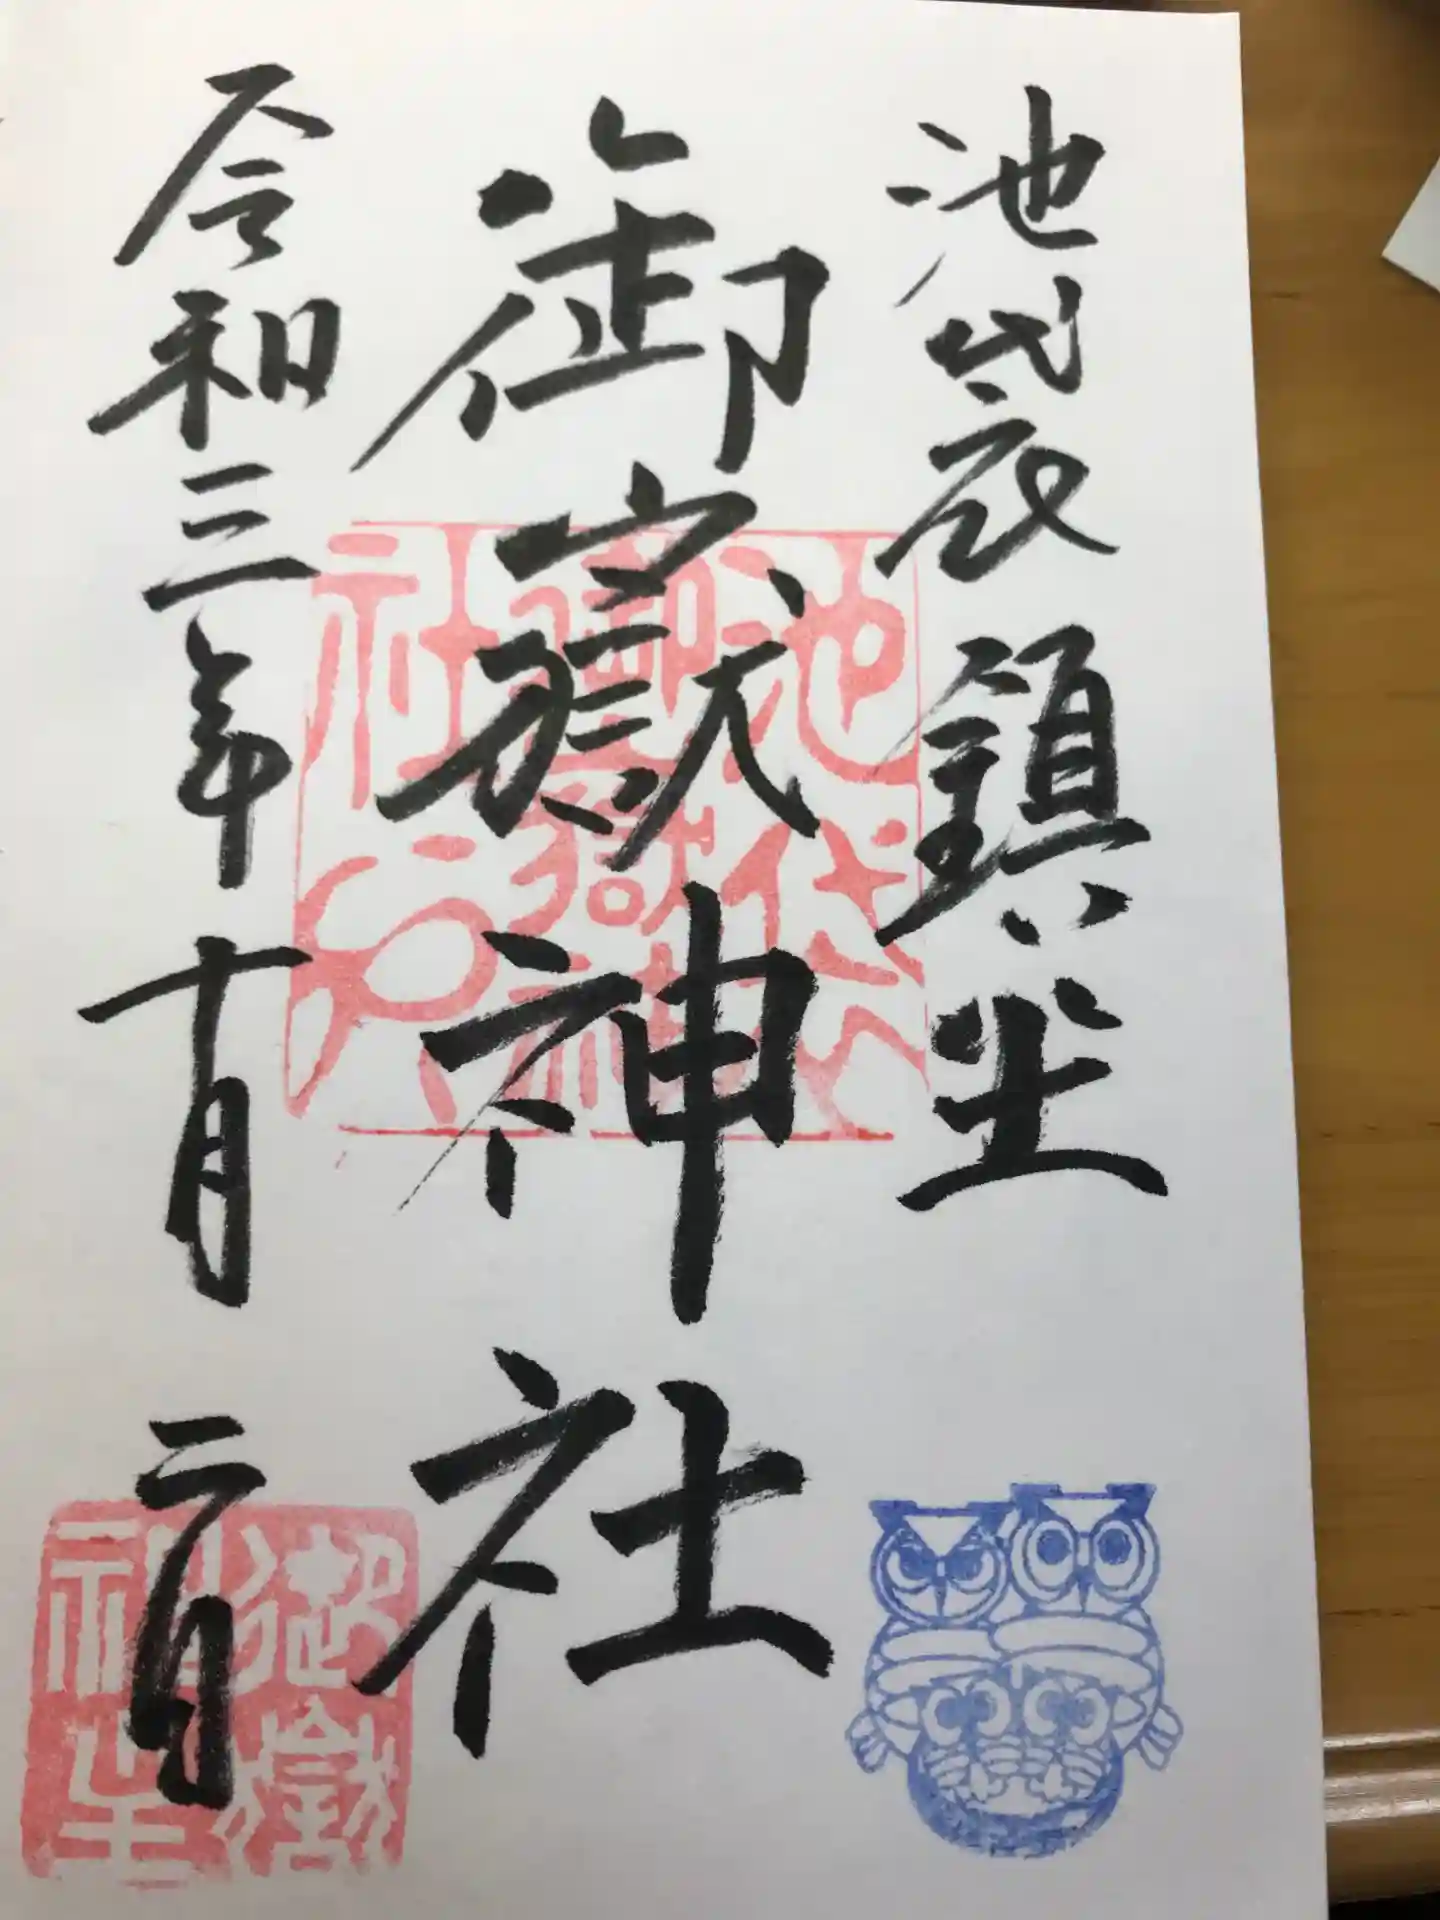 池袋鎮坐
御嶽神社
令和三年十月二日
池袋
御嶽神
社
御嶽